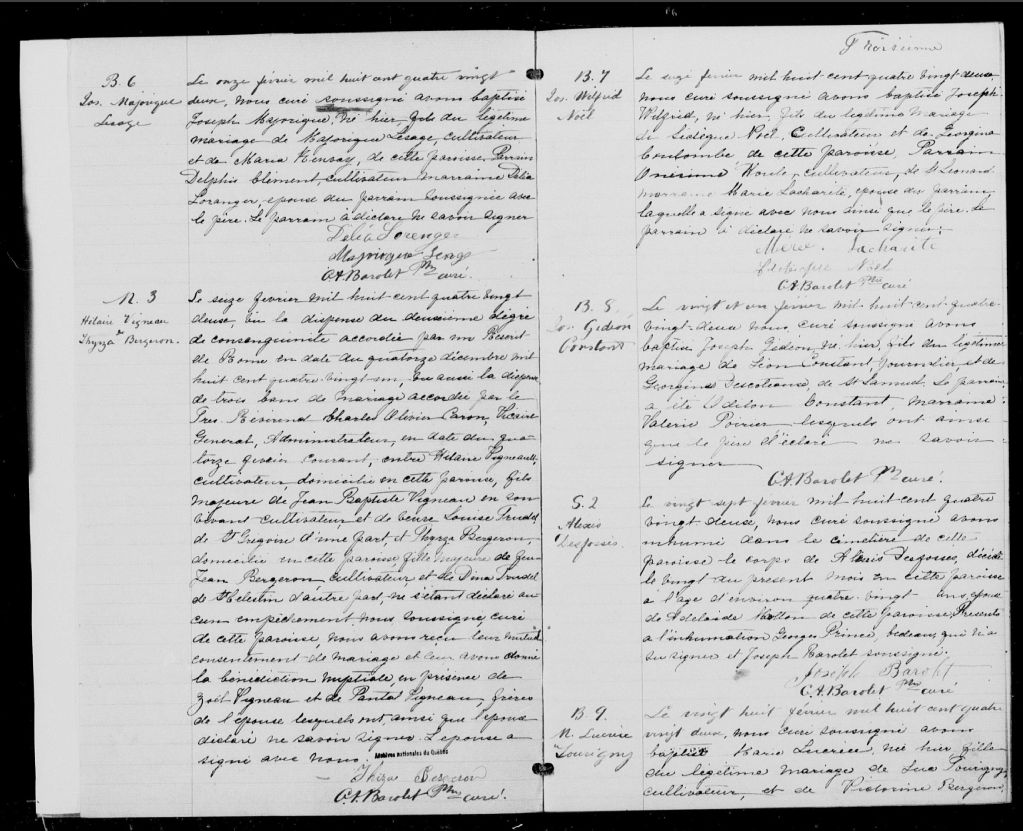 Troisième
B. 6
Jos. Majorique
Lesage
Le onze février mil huit cent quatre vingt
deux, nous curé soussigné avons baptisé
Joseph Majorique, né hier, fils du légitime
mariage de Majorique Lesage, cultivateur
et de Maria Hensay, de cette paroisse. Parrain
Delphis Clément, cultivateur marraine Délia
Loranger, épouse du parrain soussignée avec
le père. Le parrain a déclaré ne savoir signer
Délia Lorenger
Majorique Lesage
C.A. Barolet Ptre curé.
M. 3
Hilaire Vigneau
&
Thyrza Bergeron.
Le seize février mil huit cent quatre vingt
deux, vu la dispense du deuxième dégré
de consanguinité accordée par un Rescrit
de Rome en date du quatorze décembre mil
huit cent quatre vingt un, vu aussi la dispense
de trois bans de mariage accordée par le
Très Révérend Charles Olivier Caron, Vicaire
Général, Administrateur, en date du qua-
torze février courant, entre Hilaire Vigneault,
cultivateur, domicilié en cette paroisse, fils
majeure de Jean Baptiste Vigneau en son
vivant cultivateur et de Louise Trudel,
de St Grégoire d'une part, et Thyrza Bergeron,
domicilié en cette paroisse fille majeure de
Jean Bergeron cultivateur et de Dina Trudel
de St Célestin d'autre part, ne s'étant déclaré au-
cun empêchement nous soussigné, curé
de cette paroisse, nous avons reçu leur mutuel
consentement de mariage et leur avons donné
la bénédiction nuptiale en présence de
Zoël Vigneau et de Pantal Vigneau, frères
de l'épouse lesquels ont ainsi que l'époux
déclaré ne savoir signer. L'épouse a
signé avec nous.
Archives nationales du Québec
Thirza Bergeron
C.A. Barolet Ptre curé.
B. 7
Jos. Wilfrid
Noël
Le seize février mil huit cent quatre vingt deux,
nous curé soussigné avons baptisé Joseph
Wilfrid, né hier, fils du légitime mariage
de Noël, Cultivateur et de Georgina
Coulombe de cette paroisse, Parrain
Onésime Houle, cultivateur, de St Léonard
marraine Marie Lacharité, épouse du parrain,
laquelle a signé avec nous ainsi que le père. Le
parrain a déclaré ne savoir signer.
Lacharité
Noël
C.A. Barolet Ptre curé
B. 8.
Jos. Gédéon
Constant
Le vingt et un février mil huit cent quatre
vingt-deux nous, curé soussigné avons
baptisé Joseph Gédéon, né hier, fils du légitime
mariage de Léon Constant, journalier, et de
Georgina Descoteaux, de St Samuel. Le parrain
a été Odilon Constant, marraine
Valérie Poirier lesquels ont ainsi
que le père déclaré ne savoir
signer
C.A. Barolet Ptre curé.
S. 2
Alexis
Desfossés.
Le vingt sept février mil huit cent quatre
vingt deux, nous curé soussigné avons
inhumé dans le cimetière de cette
paroisse le corps de Alexis Desfossés, décédé
le vingt du présent mois en cette paroisse
à l'âge d'environ quatre vingt ans, époux
de Adelaide de cette paroisse. Présents
à l'inhumation George Prince, bedeau, qui n'a
su signer et Joseph Barolet soussigné.
Joseph Barolet
C.A. Barolet Ptre curé
B. 9.
M. Lucrèce
Lourigny
Le vingt huit février mil huit cent quatre
vingt deux, nous curé soussigné avons
baptisé Marie Lucrèce, née hier, fille
du légitime mariage de Luc Lourigny
cultivateur, et de Victorine Bergeron,